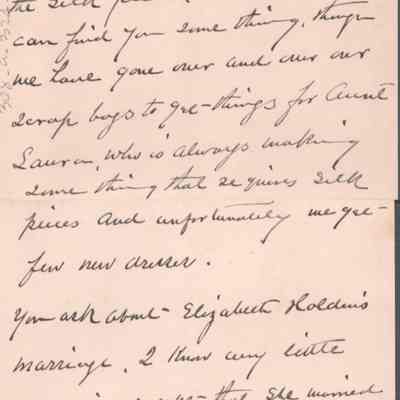 the silk
can find you some thing, though
we have gone over and over our
scrap bags to get things for Aunt
Laura, who is always making
some thing that requires silk
pieces and unfortunately we get
few new dresses.
You ask about Elizabeth Holden's
marriage, I know very little
that she married